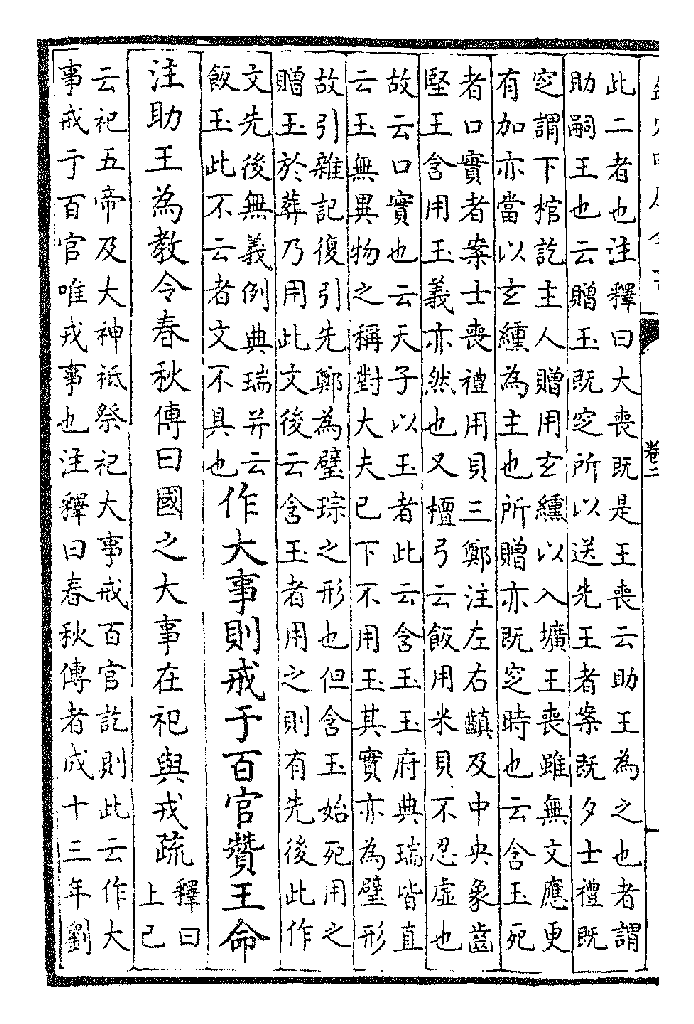 此二者也注釋曰大喪既是王喪云助王為之也者謂
助嗣王也云贈玉既窆所以送先王者案既夕士禮既
窆謂下棺訖主人贈用玄纁以入壙王喪雖無文應更
有加亦當以玄纁為主也所贈亦既窆時也云含玉死
者口實者案士喪禮用貝三鄭注左右齻及中央象齒
堅王含用玉義亦然也又檀弓云飯用米貝不忍虛也
故云口實也云天子以玉者此云含玉玉府典瑞皆直
云玉無異物之稱對大夫已下不用玉其實亦為璧形
故引雜記復引先鄭為璧琮之形也但含玉始死用之
贈玉於葬乃用此文後云含玉者用之則有先後此作
文先後無義例典瑞并云
飯玉此不云者文不具也
作大事則戒于百官贊王命
注助王為教令春秋傳曰國之大事在祀與戎疏
釋曰
上已
云祀五帝及大神祗祭祀大事戒百官訖則此云作大
事戒于百官唯戎事也注釋曰春秋傳者成十三年劉
卷二